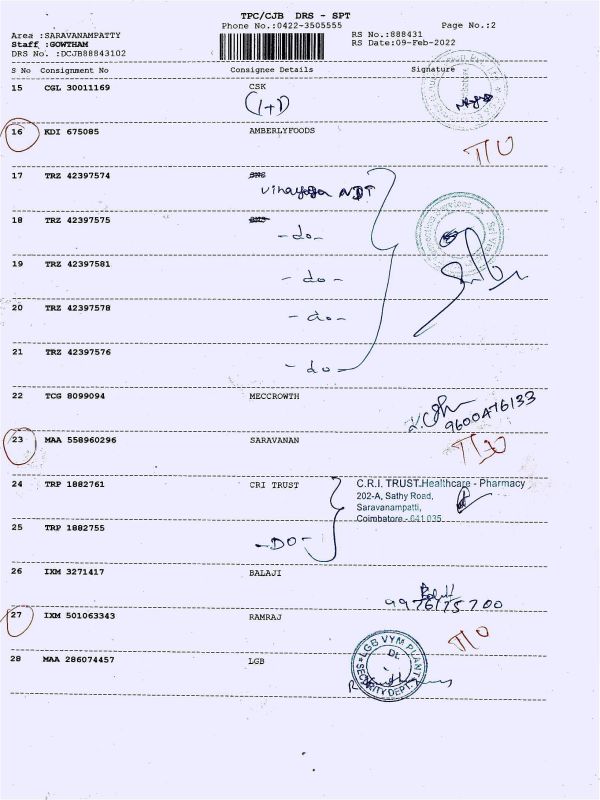 TPC/CJB DRS - SPT
Phone No.:0422-3505555
Page No.:2
Area :SARAVANAMPATTY
RS No.:888431
Staff :GOWTHAM
RS Date:09-Feb-2022
DRS No. :DCJB88843102
S No Consignment No Consignee Details Signature
15 CGL 30011169 CSK
(1+1)
16 KDI 675085 AMBERLYFOODS
17 TRZ 42397574
Vinayaga NDT
18 TRZ 42397575
-do-
19 TRZ 42397581
-do-
20 TRZ 42397578
-do-
21 TRZ 42397576
-do-
22 TCG 8099094 MECCROWTH
9600476133
23 MAA 558960296 SARAVANAN
24 TRP 1882761 CRI TRUST
C.R.I. TRUST.Healthcare - Pharmacy
202-A, Sathy Road,
Saravanampatti,
Coimbatore - 641 035
25 TRP 1882755
-DO-
26 IXM 3271417 BALAJI
27 IXM 501063343 RAMRAJ
28 MAA 286074457 LGB
LGB VYM PLANT
Dt.
SECURITY DEPT.